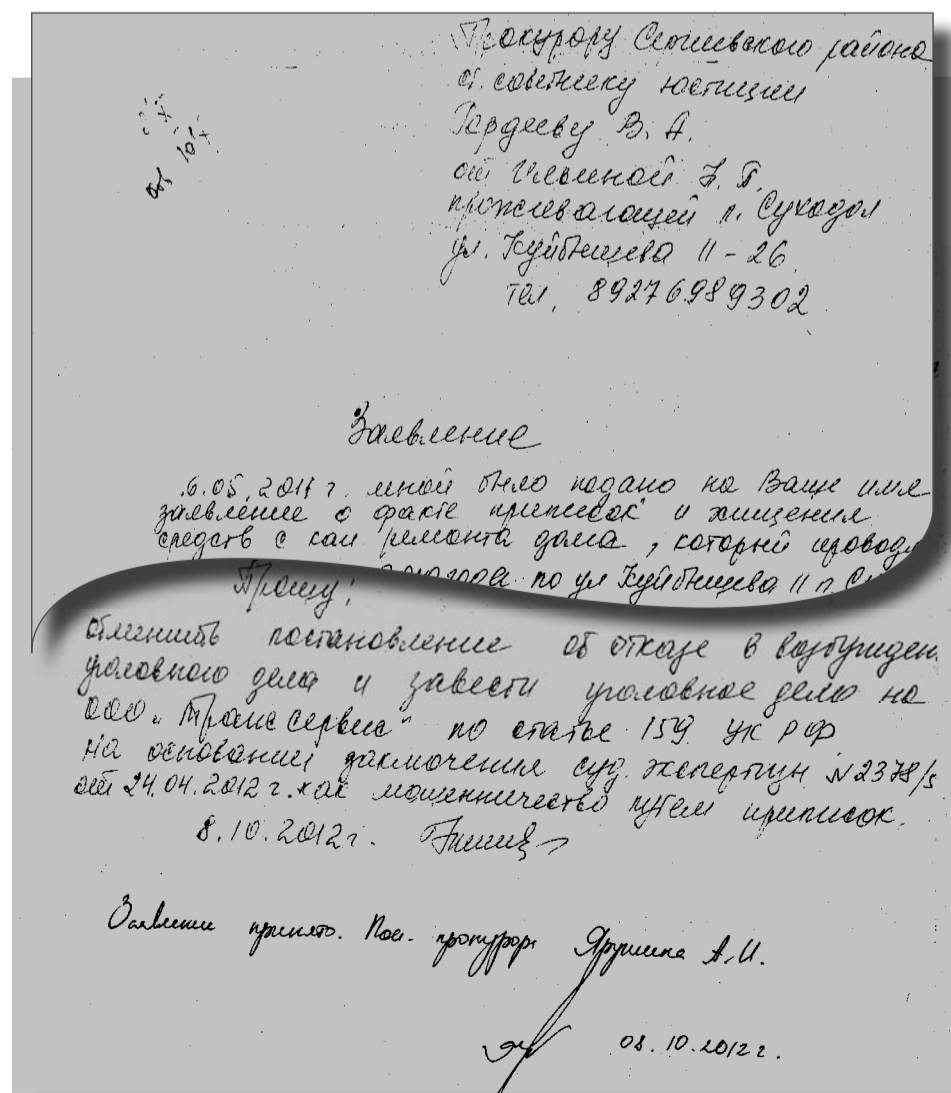 Прокурору Сергиевского района
ст. советнику юстиции
Гордееву В. А.
от Ильиной Н. П.
проживающей п. Суходол
ул. Куйбышева 11-26
тел. 89276989302
Заявление
6.05.2011 г. мной было подано на Ваше имя
заявление о факте приписок и хищения
средств с кап ремонта дома, который провод
года по ул Куйбышева 11 п. Су
Прошу:
отменить постановление об отказе в возбужден.
уголовного дела и завести уголовное дело на
ООО "ТрансСервис" по статье 159 УК РФ
на основании заключения суд. экспертизы N2378/5
от 24.04.2012 г. как мошенничество путем приписок.
8.10.2012г.
Заявление принято. Пом. прокурора Ярушина А.И.
08.10.2012г.